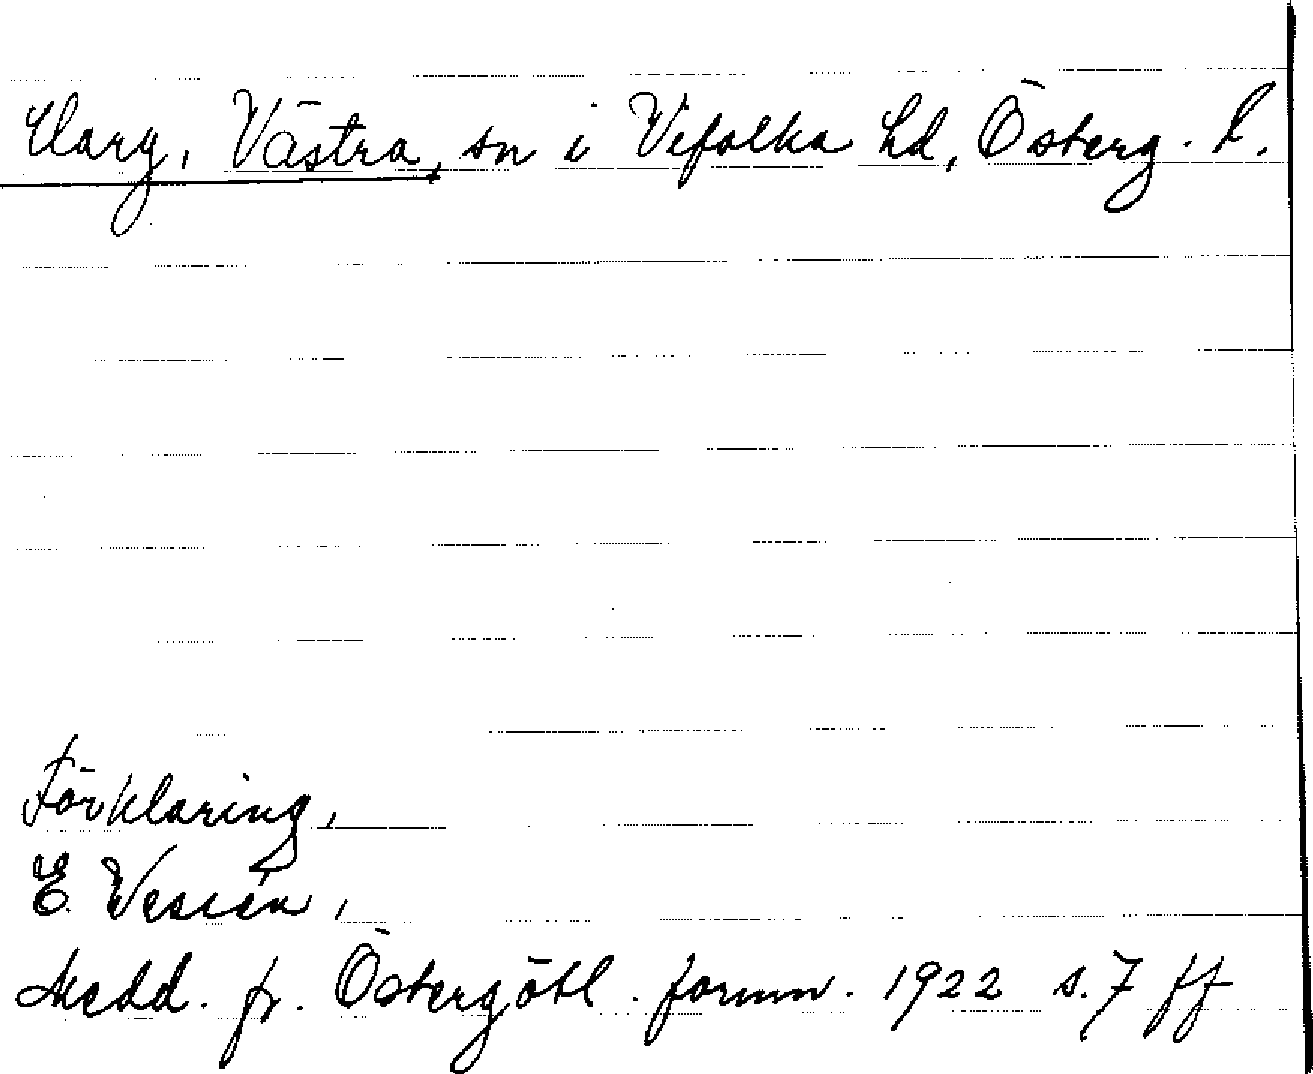 Harg, Västra, sn i Vifolka hd, Österg. l.
Förklaring,
E. Wessén,
Medd. fr. Östergötl. fornm. 1922 s. 7 ff